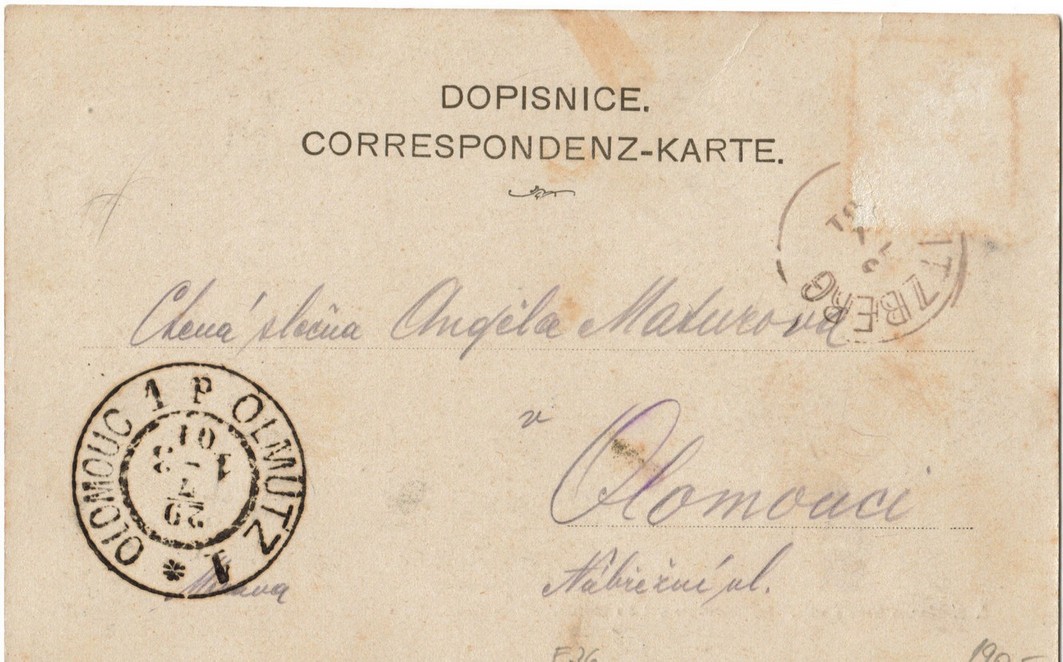 DOPISNICE.
CORRESPONDENZ-KARTE.
ITZBERG
01
Ctená slečna Angéla Maturova
v
Olomouci
Nábřežní ul.
OLOMOUC 1 P OLMUTZ 1
01
29
Morava